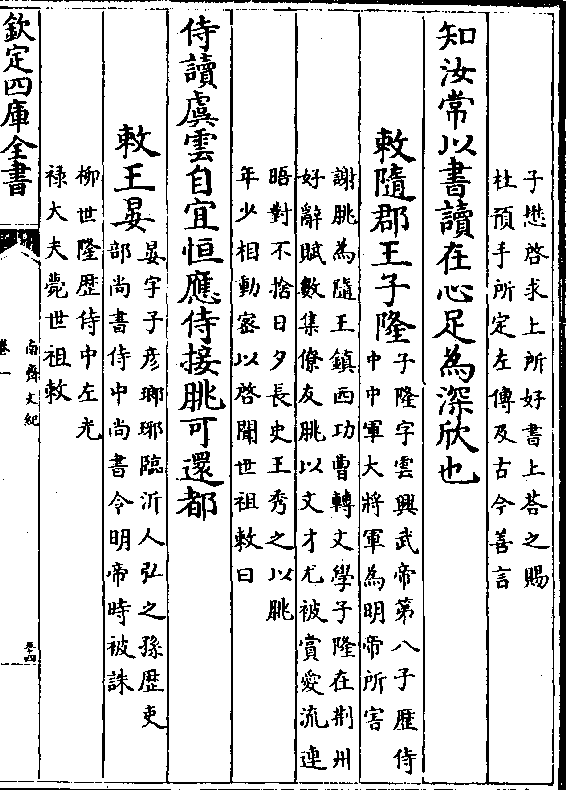 子懋啓求上所好書上荅之賜
杜預手所定左傳及古今善言
知汝常以書讀在心足為深欣也
敕隨郡王子隆
子隆字雲興武帝第八子歴侍
中中軍大將軍為明帝所害
謝朓為隨王鎮西功曹轉文學子隆在荆州
好辭賦數集僚友朓以文才尤被賞愛流連
晤對不捨日夕長史王秀之以朓
年少相動宻以啓聞世祖敕曰
侍讀虞雲自宜恒應侍接朓可還都
敕王晏
晏字子彦瑯琊臨沂人弘之孫歴吏
部尚書侍中尚書令明帝時被誅
柳世隆歴侍中左光
禄大夫薨世祖敕
欽定四庫全書
南齊文紀
卷一